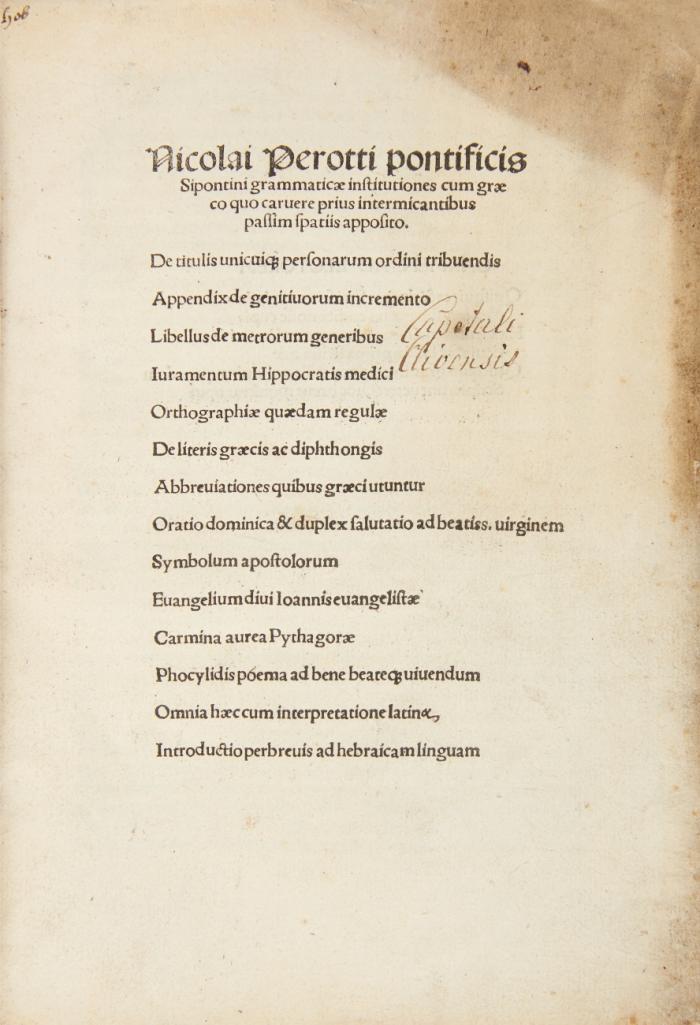 Nicolai Perotti pontificis
Sipontini grammaticæ inſtitutiones cum græ
co quo caruere prius intermicantibus
paſſim ſpatiis appoſito.
De titulis unicuiqꝫ perſonarum ordini tribuendis
Appendix de genitiuorum incremento
Libellus de metrorum generibus
Iuramentum Hippocratis medici
Orthographiæ quædam regulæ
De literis græcis ac diphthongis
Abbreuiationes quibus græci utuntur
Oratio dominica & duplex ſalutatio ad beatiss. uirginem
Symbolum apoſtolorum
Euangelium diui Ioannis euangeliſtæ
Carmina aurea Pythagoræ
Phocylidis poema ad bene beateqꝫ uiuendum
Omnia hæc cum interpretatione latina,
Introductio perbreuis ad hebraicam linguam